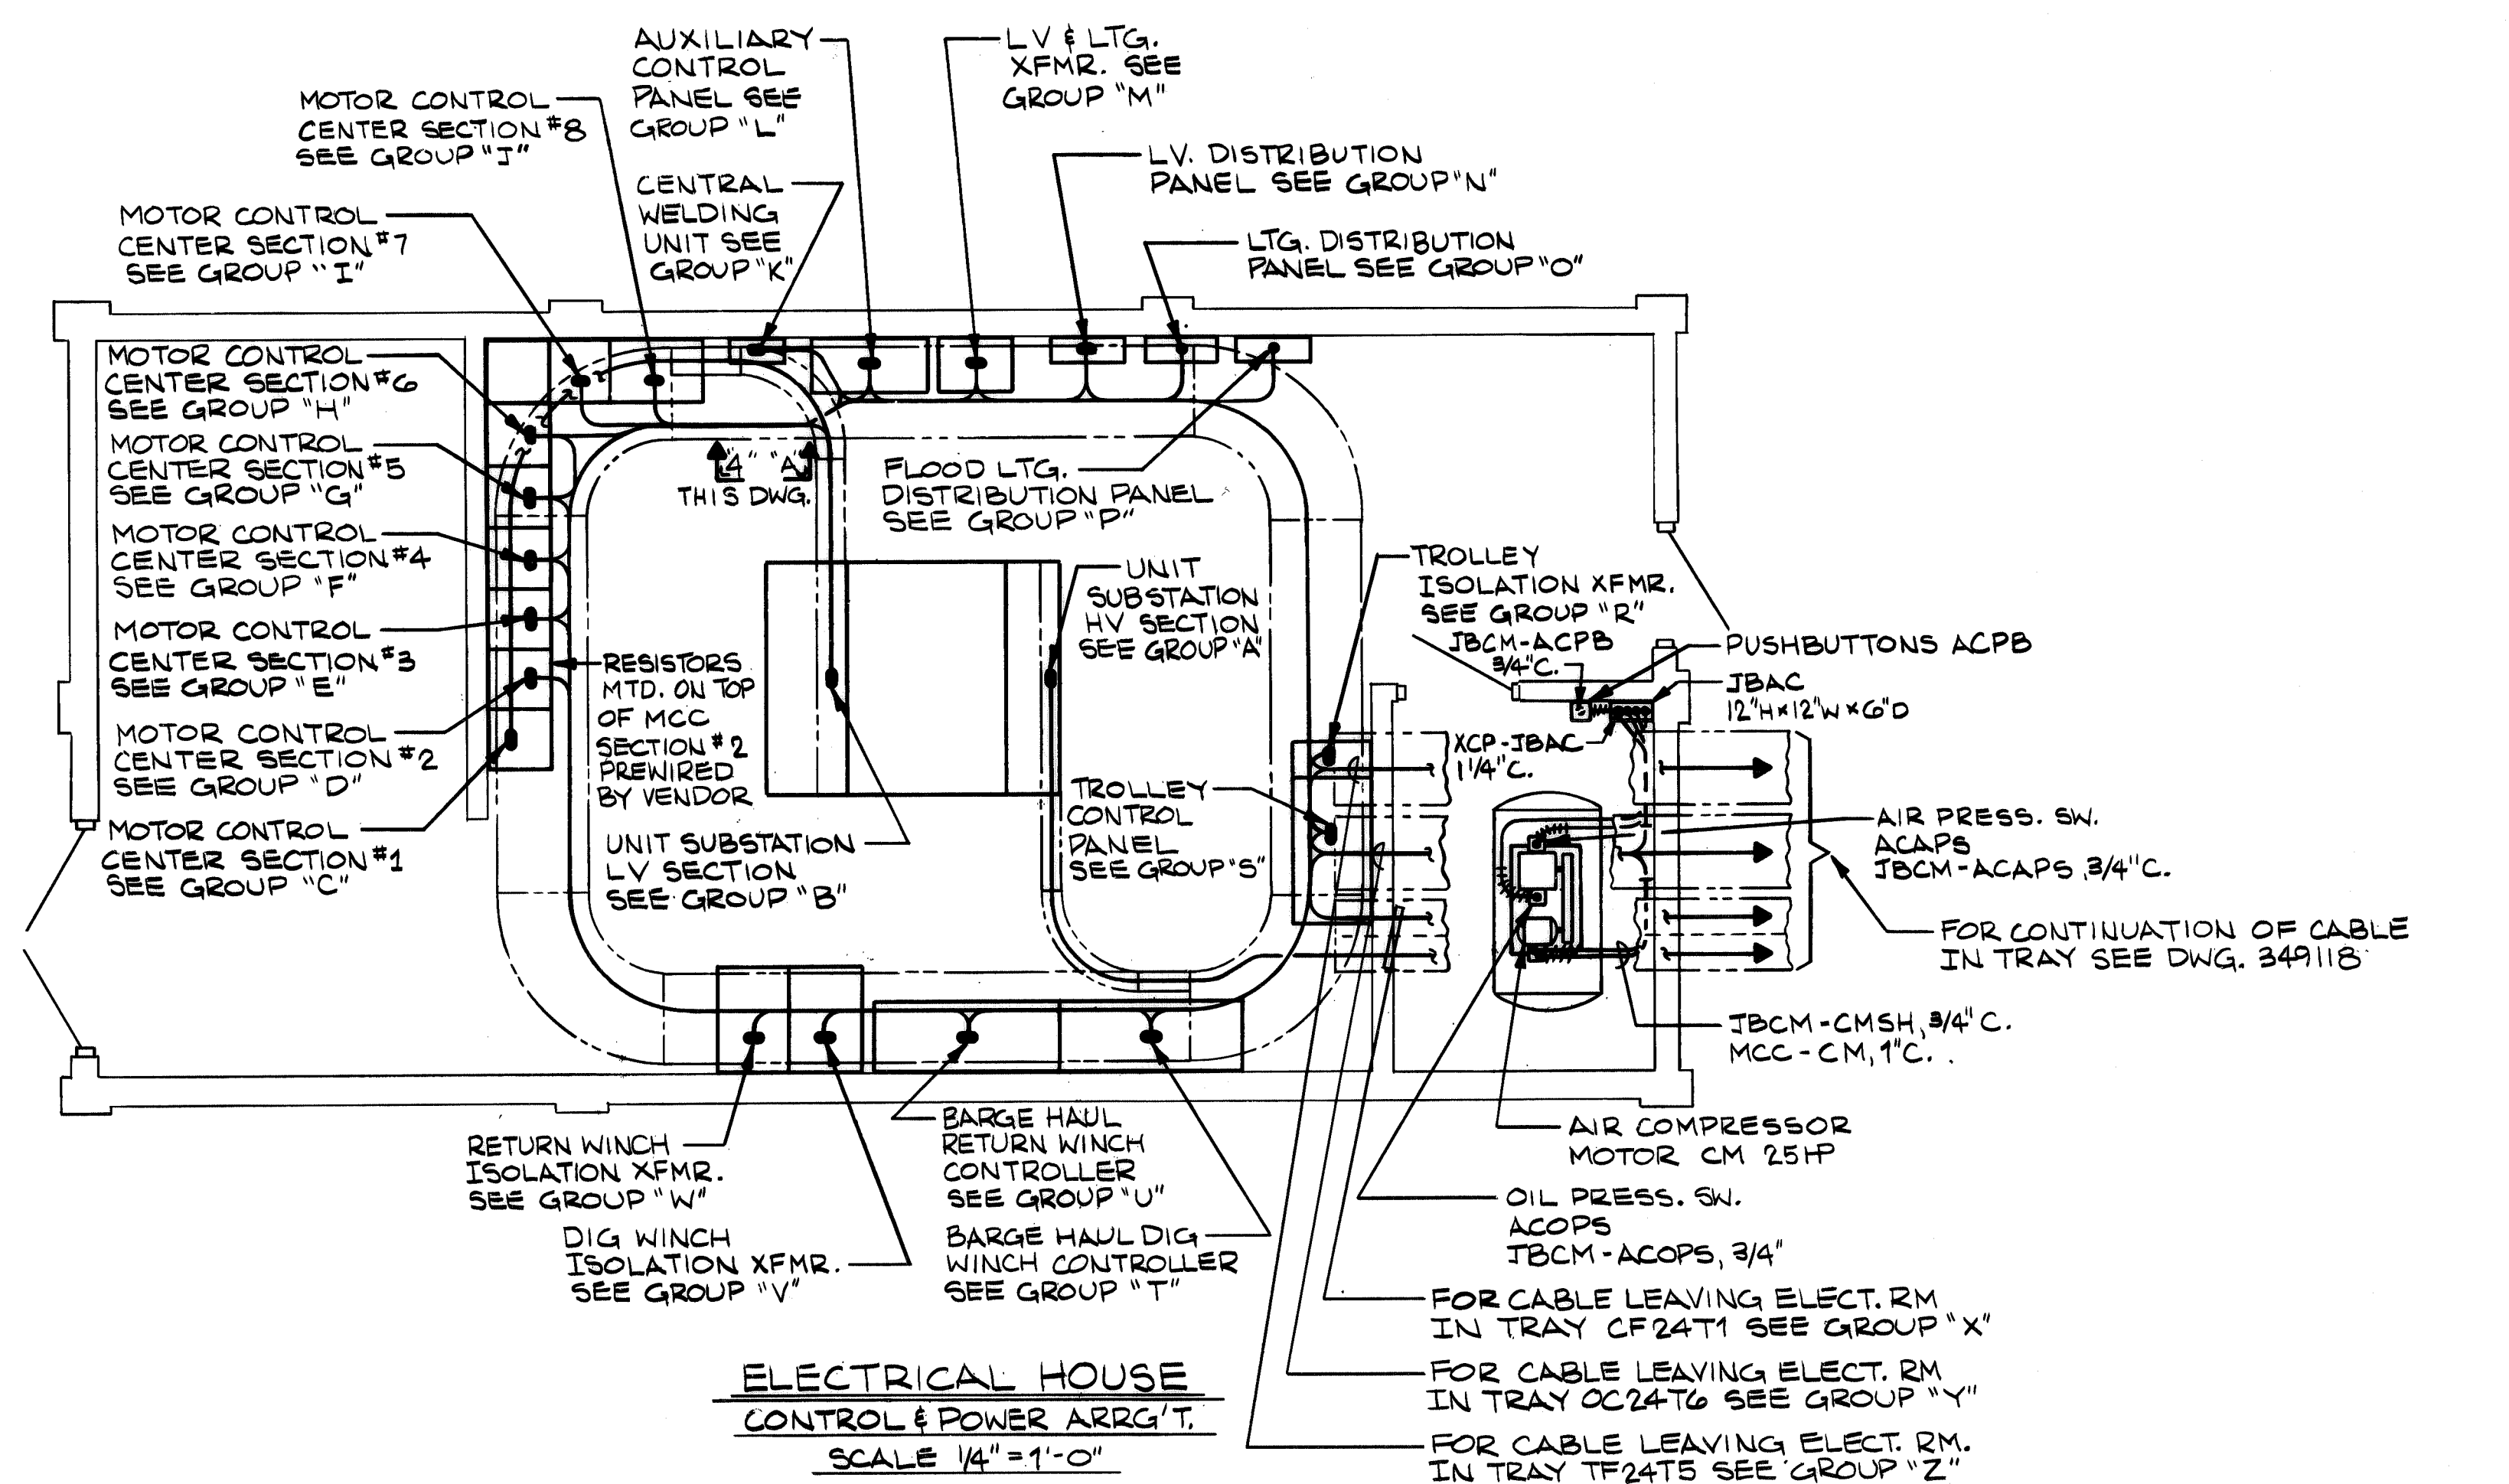 AUXILIARY
CONTROL
PANEL SEE
GROUP "L"
LV & LTG.
XFMR. SEE
GROUP "M"
MOTOR CONTROL
CENTER SECTION #8
SEE GROUP "J"
LV. DISTRIBUTION
PANEL SEE GROUP "N"
CENTRAL
WELDING
UNIT SEE
GROUP "K"
MOTOR CONTROL
CENTER SECTION #7
SEE GROUP "I"
LTG. DISTRIBUTION
PANEL SEE GROUP "O"
MOTOR CONTROL
CENTER SECTION #6
SEE GROUP "H"
MOTOR CONTROL
CENTER SECTION #5
SEE GROUP "G"
MOTOR CONTROL
CENTER SECTION #4
SEE GROUP "F"
MOTOR CONTROL
CENTER SECTION #3
SEE GROUP "E"
MOTOR CONTROL
CENTER SECTION #2
SEE GROUP "D"
MOTOR CONTROL
CENTER SECTION #1
SEE GROUP "C"
"A"
THIS DWG.
FLOOD LTG.
DISTRIBUTION PANEL
SEE GROUP "P"
RESISTORS
MTD. ON TOP
OF MCC
SECTION #2
PREWIRED
BY VENDOR
UNIT SUBSTATION
LV SECTION
SEE GROUP "B"
UNIT
SUBSTATION
HV SECTION
SEE GROUP "A"
TROLLEY
ISOLATION XFMR.
SEE GROUP "R"
JBCM-ACPB
3/4"C.
PUSHBUTTONS ACPB
JBAC
12"H×12"W×6"D
XCP-JBAC
1 1/4"C.
TROLLEY
CONTROL
PANEL
SEE GROUP "S"
AIR PRESS. SW.
ACAPS
JBCM-ACAPS, 3/4"C.
FOR CONTINUATION OF CABLE
IN TRAY SEE DWG. 349118
JBCM-CMSH, 3/4"C.
MCC-CM, 1"C.
AIR COMPRESSOR
MOTOR CM 25HP
OIL PRESS. SW.
ACOPS
JBCM-ACOPS, 3/4"
RETURN WINCH
ISOLATION XFMR.
SEE GROUP "W"
DIG WINCH
ISOLATION XFMR.
SEE GROUP "V"
BARGE HAUL
RETURN WINCH
CONTROLLER
SEE GROUP "U"
BARGE HAUL DIG
WINCH CONTROLLER
SEE GROUP "T"
FOR CABLE LEAVING ELECT. RM
IN TRAY CF24T1 SEE GROUP "X"
FOR CABLE LEAVING ELECT. RM
IN TRAY OC24T6 SEE GROUP "Y"
FOR CABLE LEAVING ELECT. RM.
IN TRAY TF24T5 SEE GROUP "Z"
ELECTRICAL HOUSE
CONTROL & POWER ARRG'T.
SCALE 1/4"=1'-0"